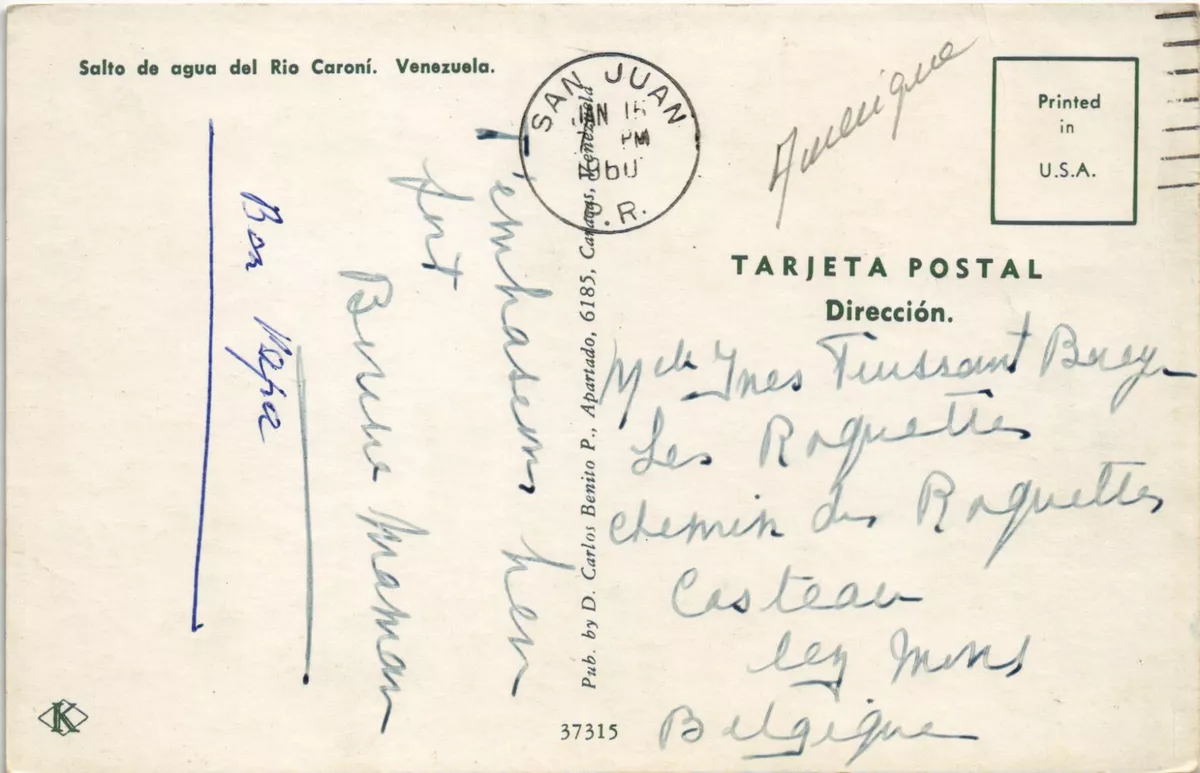 Salto de agua del Rio Caroní. Venezuela.
SAN JUAN
JAN 15
PM
1960
P.R.
Amerique
Printed
in
U.S.A.
T'embrasons bien
fort
Bonne Maman
Bon Papa
Pub. by D. Carlos Benito P., Apartado, 6185, Caracas, Venezuela
TARJETA POSTAL
Dirección.
Melle Ines Toussaint Barey
Les Roquettes
Chemin des Roquettes
Casteau
lez Mons
Belgique
K
37315